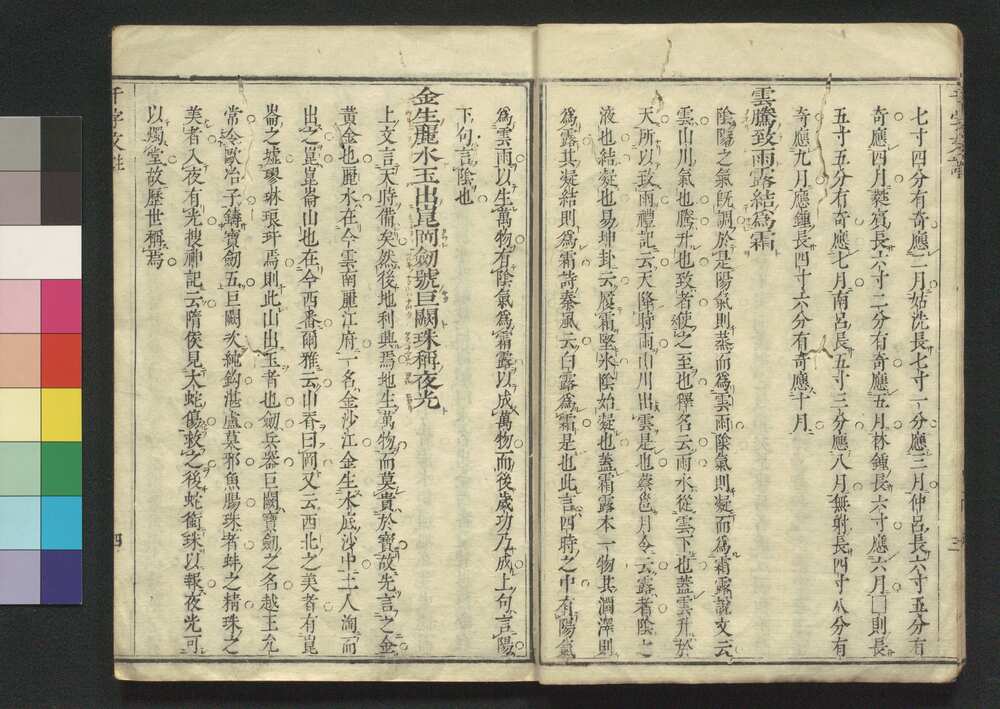 七寸四分有奇應二月姑洗長七寸一分應三月仲呂長六寸五分有
奇應四月蕤賓長六寸二分有奇應五月林鍾長六寸應六月□則長
五寸五分有奇應七月南呂長五寸三分應八月無射長四寸八分有
奇應九月應鍾長四寸六分有奇應十月
雲騰致雨露結爲霜
陰陽之氣既調於是陽氣則蒸而爲雲雨陰氣則凝而爲霜露說文云
雲山川氣也騰升也致者使之至也釋名云雨水從雲下也蓋雲升於
天所以致雨禮記云天降時雨山川出雲是也蔡邕月令云露者陰之
液也結凝也易坤卦云履霜堅氷陰始凝也蓋霜露本一物其潤澤則
爲露其凝結則爲霜詩秦風云白露爲霜是也此言四時之中有陽氣
爲雲雨以生萬物有陰氣爲霜露以成萬物而後歲功乃成上句言陽
下句言陰也
金生麗水玉出崑岡劒號巨闕珠稱夜光
上文言天時備矣然後地利興焉地生萬物而莫貴於寶故先言之金
黃金也麗水在今雲南麗江府一名金沙江金生水底沙中土人淘而
出之崑崑崙山也在今西番爾雅云山脊曰岡又云西北之美者有崑
崙之墟璆琳琅玕焉則此山出玉者也劒兵器巨闕寶劒之名越王允
常令歐冶子鑄寶劒五巨闕次純鈎湛盧莫邪魚腸珠者蚌之精珠之
美者入夜有光搜神記云隋侯見大蛇傷救之後蛇銜珠以報夜光可
以燭堂故歷世稱焉
四